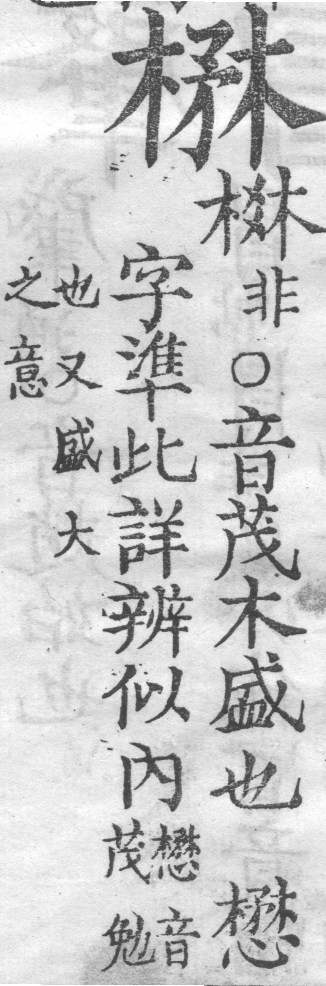 楙
棥非○音茂木盛也懋
字準此詳辨似內
懋音
茂勉
也又盛大
之意